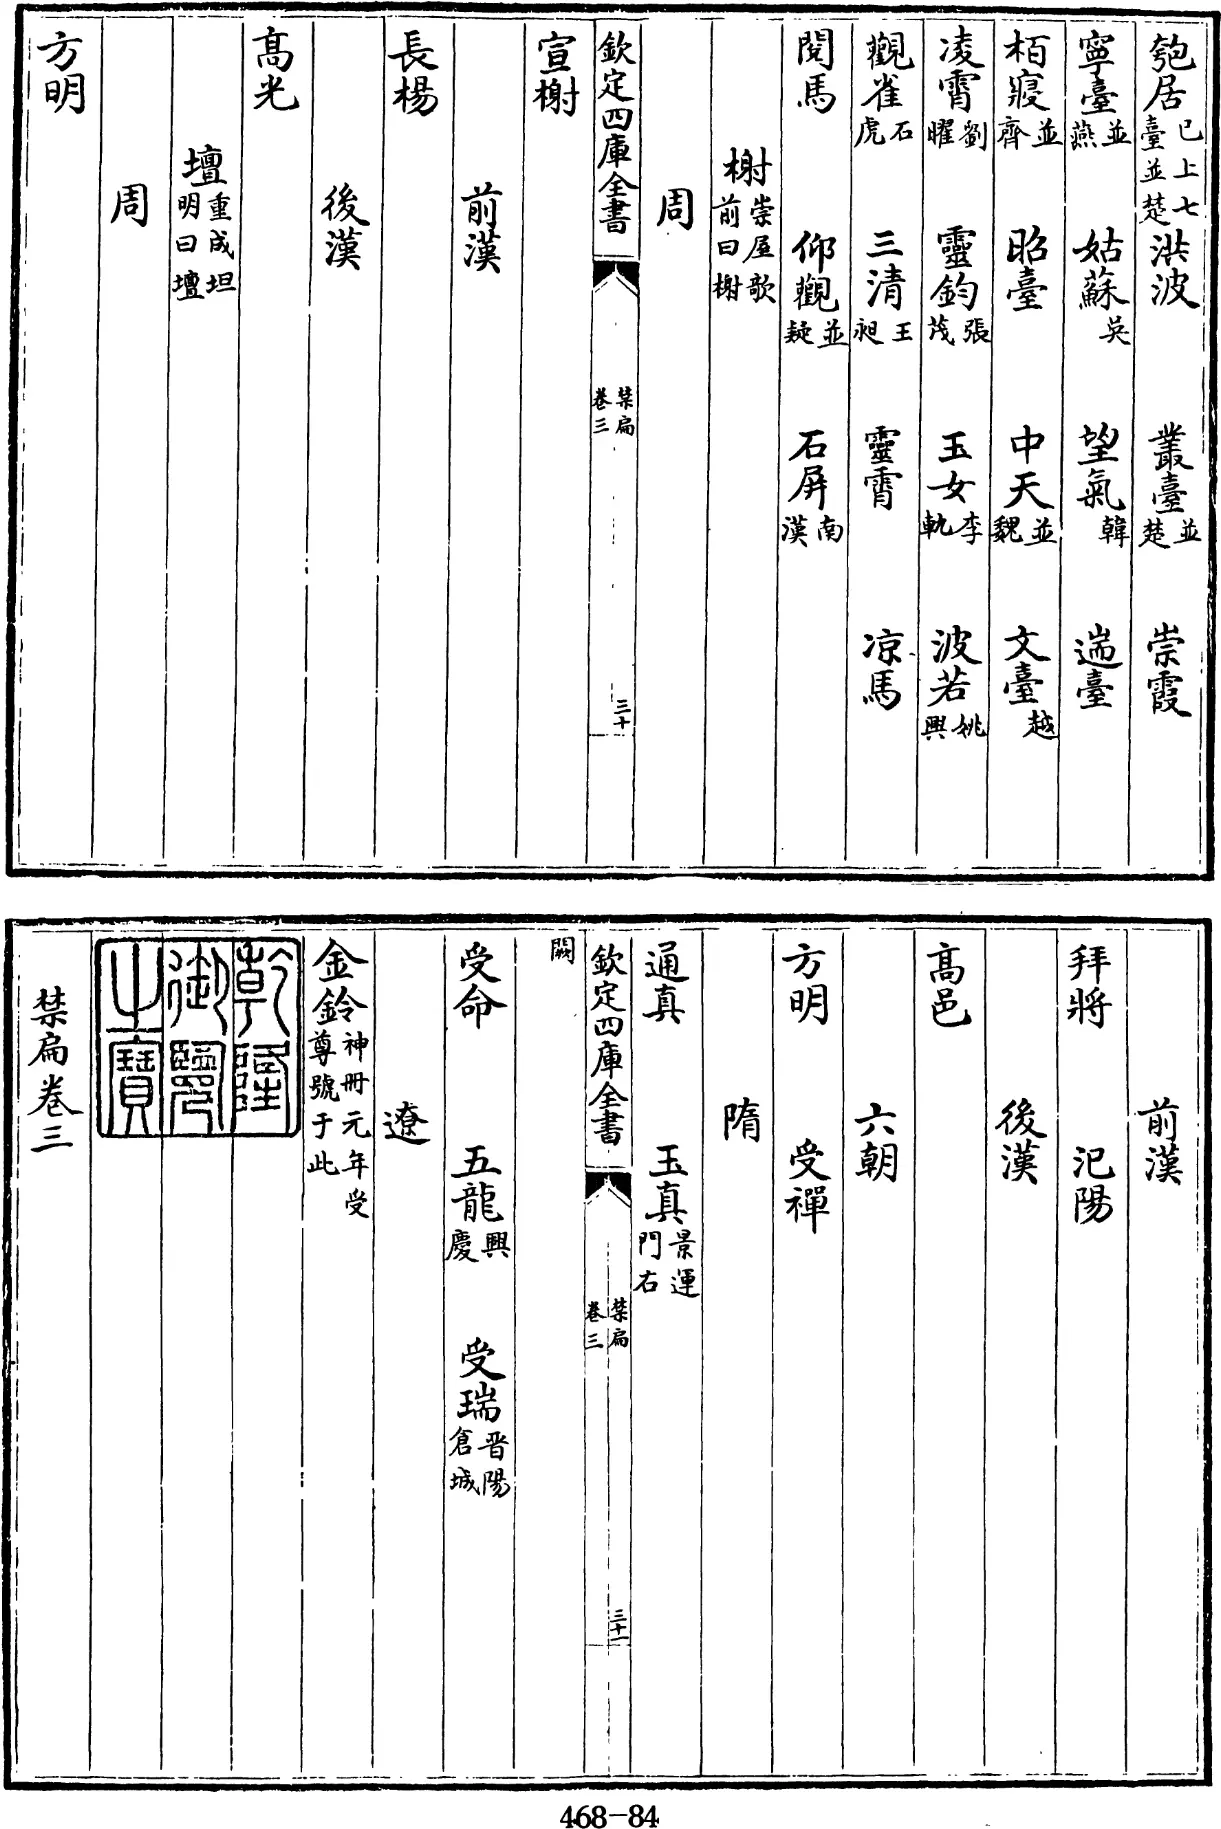 匏居已上七臺並楚 洪波 叢臺並楚 崇霞
寧臺並燕 姑蘇吳 望氣韓 遄臺
栢寢並齊 昭臺 中天並魏 文臺越
凌霄劉曜 靈鈞張茂 玉女李軌 波若姚興
觀雀石虎 三清王昶 靈霄 凉馬
閱馬 仰觀並疑 石屏南漢
榭崇屋歌前曰榭
周
欽定四庫全書 禁扁卷三 三十
宣榭
前漢
長楊
後漢
髙光
壇重成坦明曰壇
周
方明
前漢
拜將 汜陽
後漢
髙邑
六朝
方明 受禪
隋
通真 玉真景運門右
欽定四庫全書 禁扁卷三 三十一
闕
受命 五龍興慶 受瑞晋陽倉城
遼
金鈴神冊元年受尊號于此
乾隆御覽之寶
禁扁卷三
468-84